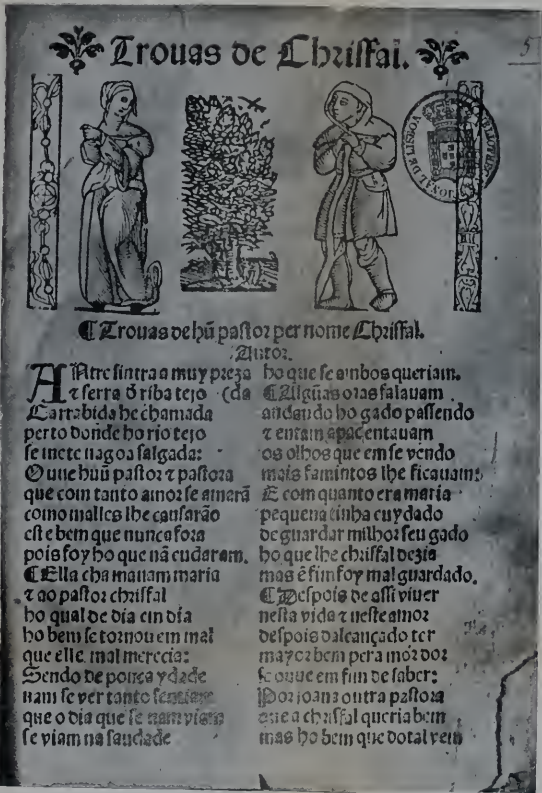 Trouas de Chrisfal.
5
NAL DE LISBOA
¶ Trouas de hũ pastor per nome Chrisfal.
Autor.
ANtre sintra a muy preza
⁊ serra õ riba tejo (da
Larrabida he chamada
perto donde ho rio tejo
se mete nagoa salgada:
Ouue hũũ pastor ⁊ pastora
que com tanto amor se amarã
como malles lhe causarão
este bem que nunca fora
pois foy ho que nã cudaram.
¶ Ella chamauam maria
⁊ ao pastor chrisfal
ho qual de dia em dia
ho bem se tornou em mal
que elle mal merecia:
Sendo de pouca ydade
nam se ver tanto
que o dia que se nam viam
se viam na saudade
ho que se ambos queriam.
¶ Algũas oras falauam
andando ho gado passendo
⁊ entam apacentauam
os olhos que em se vendo
mais famintos lhe ficauam:
E com quanto era maria
pequena tinha cuydado
de guardar milhor seu gado
ho que lhe chrisfal dezia
mas ẽ fim foy mal guardado.
¶ Despois de assi viuer
nesta vida ⁊ neste amor
despois dalcançado ter
mayor bem pera mór dor
se ouue em fim de saber:
Por joana outra pastora
que a chrisfal queria bem
mas ho bem que dotal vem